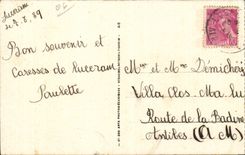 Lucéram
le 7. 8. 39
Bon souvenir et
Caresses de Luceram
Paulette
Mme et Mr Démichéri
Villa Clos-Ma-Lu
Route de la Badine
Antibes (A M)